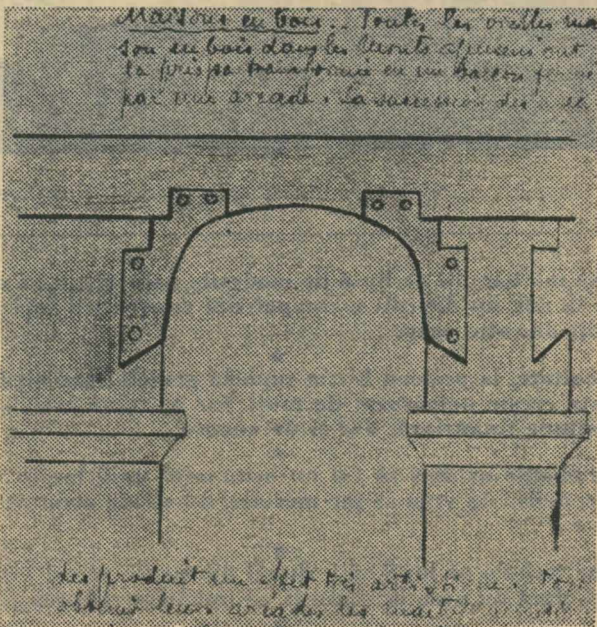 Maisons en bois. Toutes les vieilles mai
son en bois dans les Monts Apuseni ont
la prispa transformée en un balcon fermé
par une arcade. La succession des arca
des produit un effet très artistique. Pour
obtenir leurs arcades les